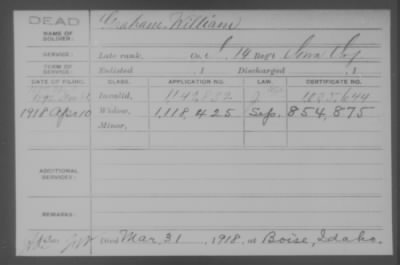 DEAD
NAME OF SOLDIER: Graham, William
SERVICE: Late rank, Co. C, 14 Reg't Iowa Inf
TERM OF SERVICE: Enlisted , 1 Discharged , 1
DATE OF FILING. CLASS. APPLICATION NO. LAW. CERTIFICATE NO.
Invalid, 1142832 1025,644
1918 Apr 10 Widow, 1,118,425 854,875
Minor,
ADDITIONAL SERVICES:
REMARKS:
Died Mar. 31, 1918, at Boise, Idaho.